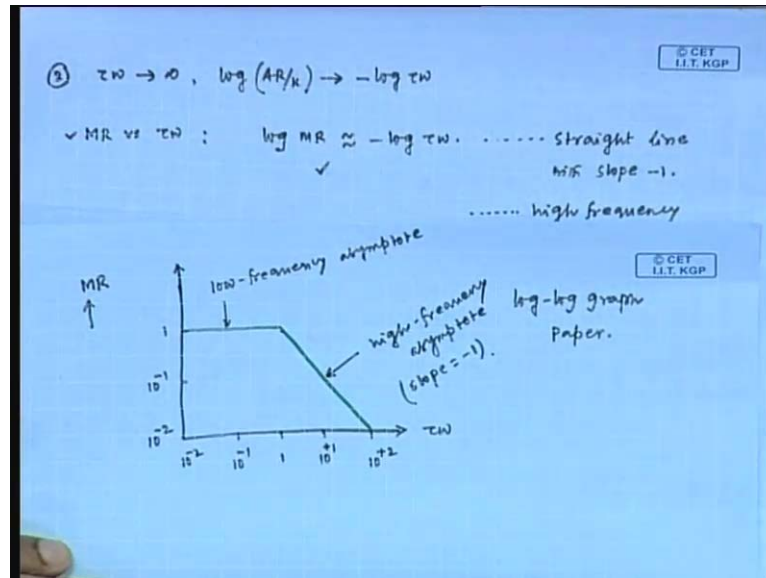 © CET
I.I.T. KGP
② τω → ∞, log (AR/K) → - log τω
✓ MR vs τω : log MR ≈ - log τω. ...... straight line
✓ with slope -1.
...... high frequency
© CET
I.I.T. KGP
MR
↑
low-frequency asymptote
high-frequency
asymptote
(slope = -1).
log-log graph
paper.
1
10⁻¹
10⁻²
10⁻² 10⁻¹ 1 10⁺¹ 10⁺² τω